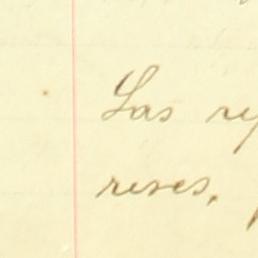 Las
reses,